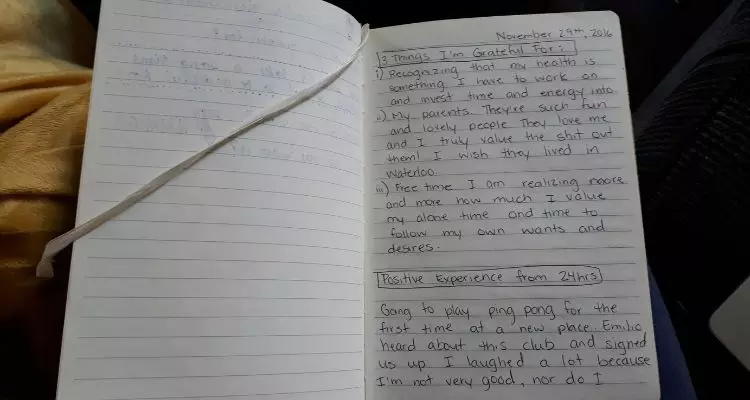 November 29th, 2016
3 Things I'm Grateful For:
i) Recognizing that my health is
something I have to work on
and invest time and energy into.
ii) My parents. They're such fun
and lovely people. They love me
and I truly value the shit out
them! I wish they lived in
Waterloo.
iii) Free time. I am realizing more
and more how much I value
my alone time and time to
follow my own wants and
desires.
Positive Experience from 24hrs
Going to play ping pong for the
first time at a new place. Emilio
heard about this club and signed
us up. I laughed a lot because
I'm not very good, nor do I